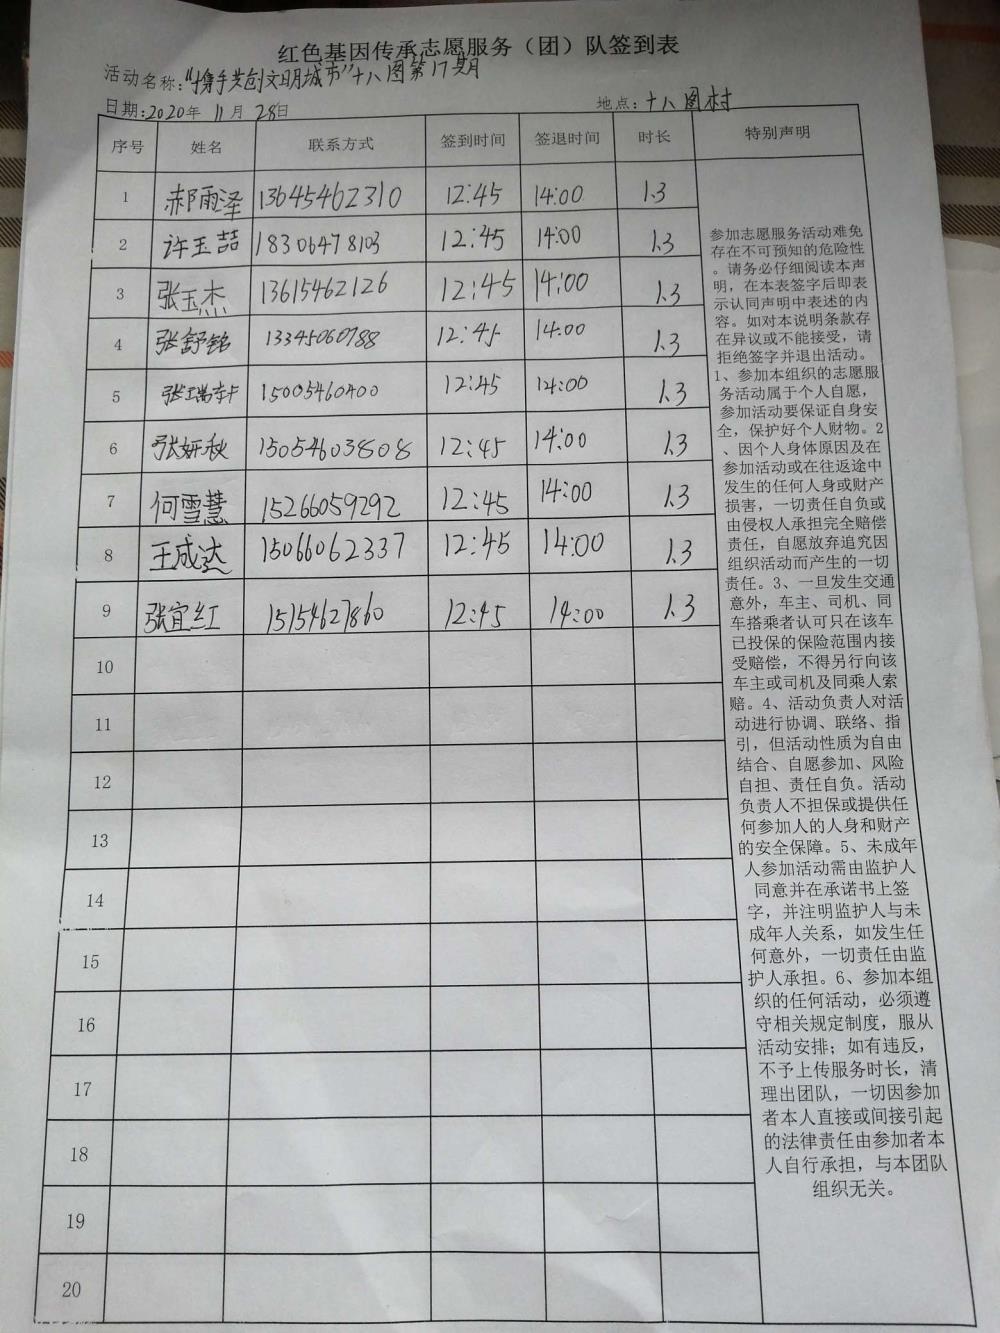 红色基因传承志愿服务（团）队签到表
活动名称："携手共创文明城市"十八图第17期
日期：2020年 11月 28日 地点：十八图村
序号 姓名 联系方式 签到时间 签退时间 时长 特别声明
1 郝雨泽 13645462310 12:45 14:00 1.3
2 许玉喆 18306478103 12:45 14:00 1.3
3 张玉杰 13615462126 12:45 14:00 1.3
4 张舒铭 13345060788 12:45 14:00 1.3
5 张瑞轩 15005460400 12:45 14:00 1.3
6 张妍秋 15054603808 12:45 14:00 1.3
7 何雪慧 15266059292 12:45 14:00 1.3
8 王成达 15066062337 12:45 14:00 1.3
9 张宜红 15154627860 12:45 14:00 1.3
10
11
12
13
14
15
16
17
18
19
20
参加志愿服务活动难免
存在不可预知的危险性
。请务必仔细阅读本声
明，在本表签字后即表
示认同声明中表述的内
容。如对本说明条款存
在异议或不能接受，请
拒绝签字并退出活动。
1、参加本组织的志愿服
务活动属于个人自愿，
参加活动要保证自身安
全，保护好个人财物。2
、因个人身体原因及在
参加活动或在往返途中
发生的任何人身或财产
损害，一切责任自负或
由侵权人承担完全赔偿
责任，自愿放弃追究因
组织活动而产生的一切
责任。3、一旦发生交通
意外，车主、司机、同
车搭乘者认可只在该车
已投保的保险范围内接
受赔偿，不得另行向该
车主或司机及同乘人索
赔。4、活动负责人对活
动进行协调、联络、指
引，但活动性质为自由
结合、自愿参加、风险
自担、责任自负。活动
负责人不担保或提供任
何参加人的人身和财产
的安全保障。5、未成年
人参加活动需由监护人
同意并在承诺书上签
字，并注明监护人与未
成年人关系，如发生任
何意外，一切责任由监
护人承担。6、参加本组
织的任何活动，必须遵
守相关规定制度，服从
活动安排；如有违反，
不予上传服务时长，清
理出团队，一切因参加
者本人直接或间接引起
的法律责任由参加者本
人自行承担，与本团队
组织无关。